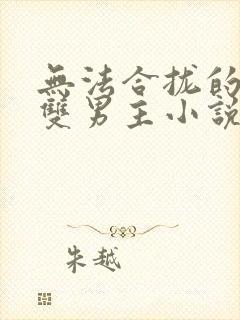 無法合拢的
雙男主小說
朱越